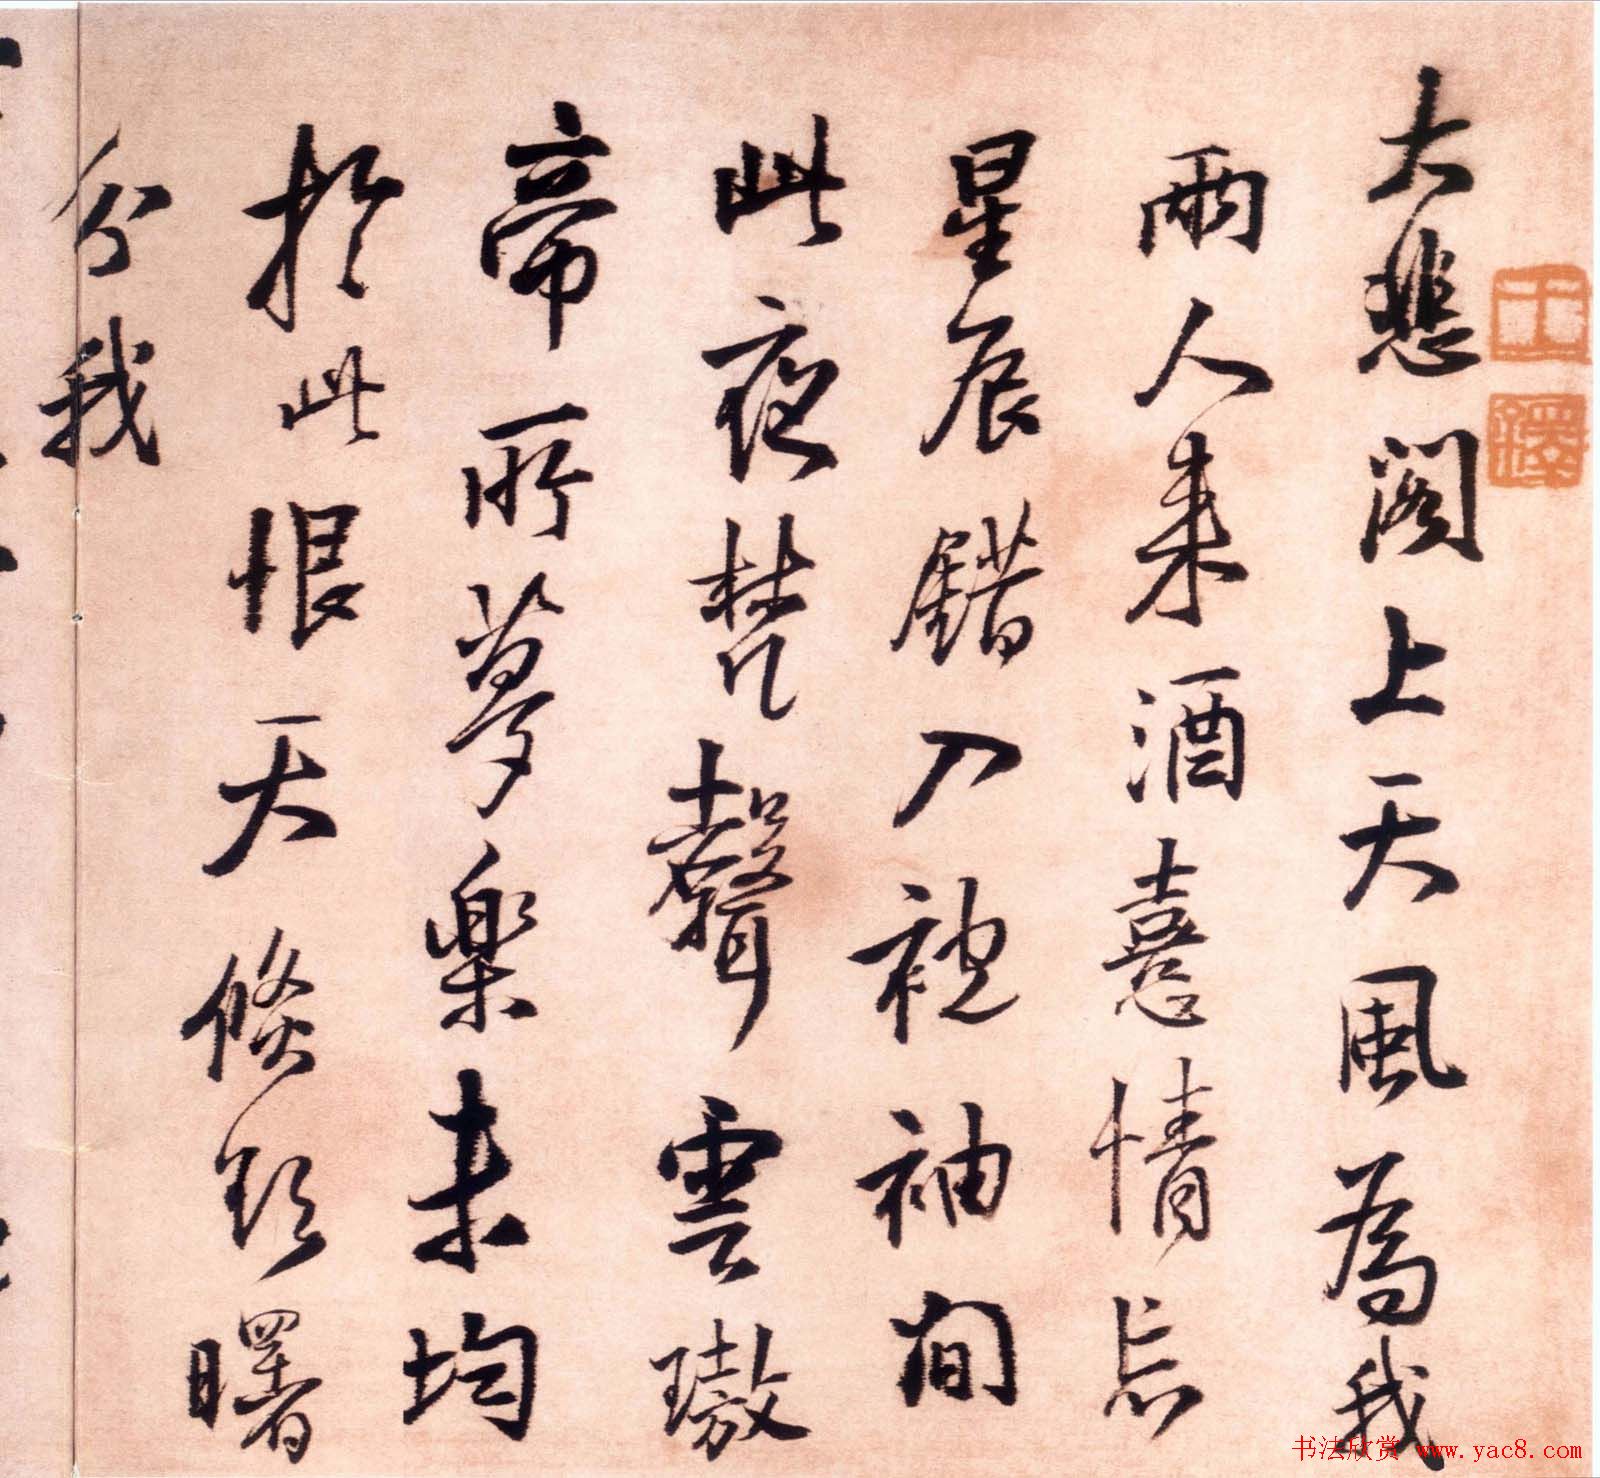 大悲閣上天風為我
兩人来酒憙情忘
星辰錯入袍袖間
此夜梵聲雲璈
帝所夢樂未均
於此恨天倏曙
分我
王鐸
书法欣赏 www.yac8.com